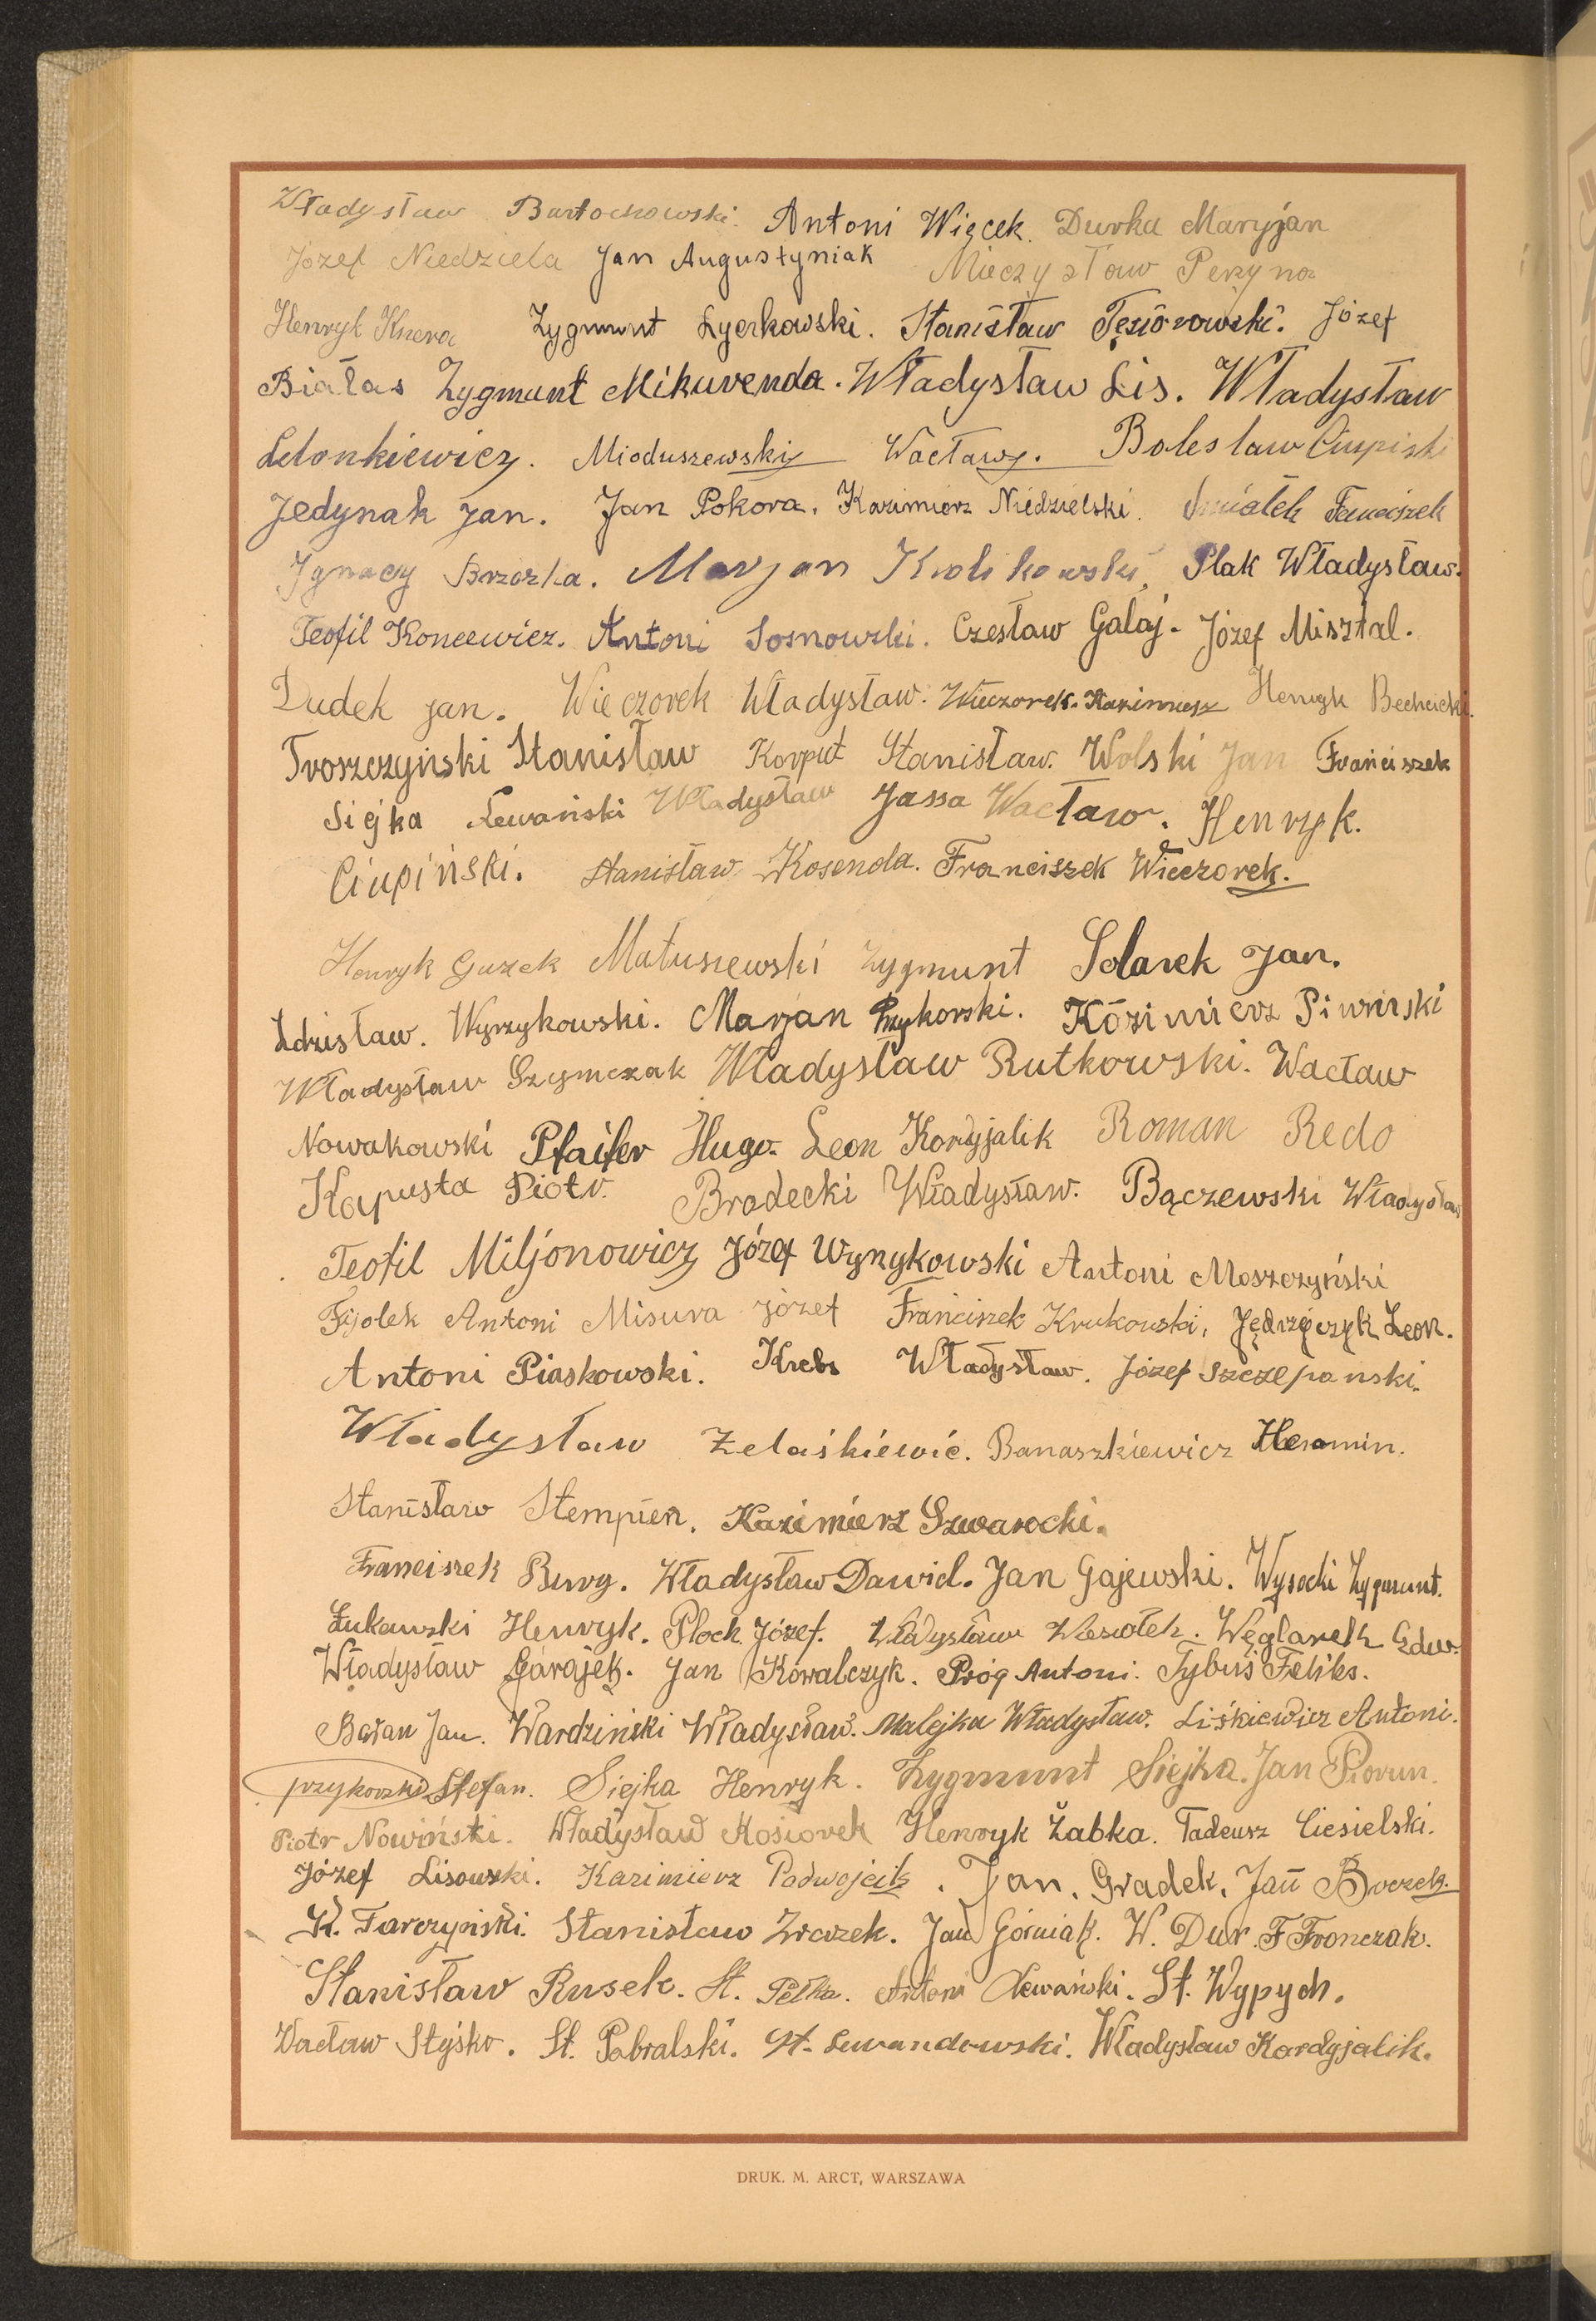 Władysław Bartochowski. Antoni Więcek. Durka Maryjan
Józef Niedziela Jan Augustyniak Mieczysław Peryna
Henryk Knera Zygmunt Łyerkowski. Stanisław Tęsiorowski. Józef
Białas Zygmunt Mikuvenda. Władysław Lis. Władysław
Lelonkiewicz. Mioduszewski Wacław. Bolesław Ciupiński
Jedynak Jan. Jan Pokora. Kazimierz Niedzielski. Śmiałek Franciszek
Ignacy Brzozka. Marjan Krolikowski, Plak Władysław.
Teofil Koncewicz. Antoni Sosnowski. Czesław Galaj. Józef Misztal.
Dudek Jan. Wieczorek Władysław. Wieczorek. Kazimierz Henryk Bechcicki.
Troszczyński Stanisław Korput Stanisław. Wolski Jan Franciszek
Siejka Lewański Władysław Jassa Wacław. Henryk.
Ciupiński. Stanisław Kosenda. Franciszek Wieczorek.
Henryk Guzek Matuszewski Zygmunt Solarek Jan.
Zdzisław. Wyrzykowski. Marjan Przykorski. Kazimierz Piwnirski
Władysław Szymczak Władysław Rutkowski. Wacław
Nowakowski Pfaifer Hugo. Leon Kordyjalik Roman Redo
Kapusta Piotr. Brodecki Władysław. Bączewski Władysław
Teofil Miljonowicz Józef Wyrzykowski Antoni Moszczyński
Fijołek Antoni Misura Józef Franciszek Krukowski, Jędrzejczyk Leon.
Antoni Piaskowski. Krebs Władysław. Józef Szczepański.
Władysław Żelaśkiewić. Banaszkiewicz Heromin.
Stanisław Stempień. Kazimierz Szwarocki.
Franciszek Burg. Władysław Dawid. Jan Gajewski. Wysocki Zygmunt.
Łukawski Henryk. Płoch. Józef. Władysław Wesołek. Węglarek Edw.
Władysław Garajek. Jan Kowalczyk. Próg Antoni. Tybuś Feliks.
Baran Jan. Wardziński Władysław. Malejka Władysław. Liśkiewicz Antoni.
Przykorski Stefan. Siejka Henryk. Zygmunt Siejka. Jan Piorun.
Piotr Nowiński. Władysław Kosiorek Henryk Żabka. Tadeusz Ciesielski.
Józef Lisowski. Kazimierz Podwojcik. Jan. Gradek. Jan Boczek.
K. Tarczyński. Stanisław Zrazek. Jan Górniak. W. Dur. F Fronczak.
Stanisław Rusek. St. Pełka. Antoni Lewański. St. Wypych.
Wacław Styśko. St. Pabralski. St. Lewandowski. Władysław Kordyjalik.
DRUK. M. ARCT, WARSZAWA